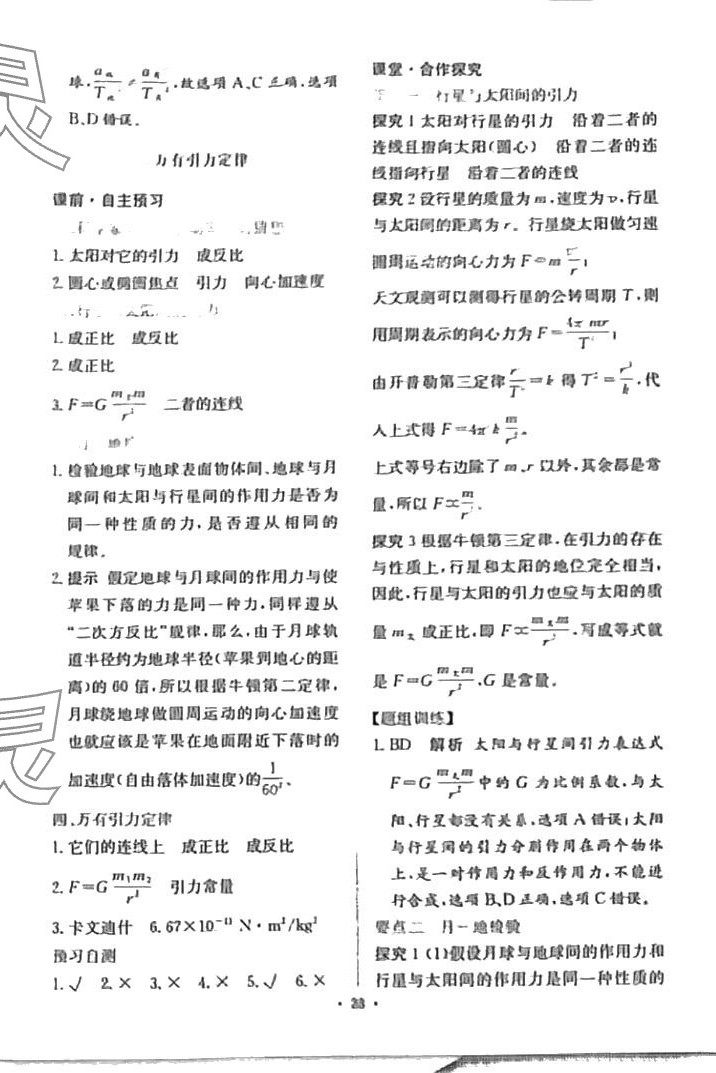 球，a地/T地² ≠ a月/T月²，故选项A、C正确，选项
B、D错误。
万有引力定律
课前·自主预习
1. 太阳对它的引力 成反比
2. 圆心或椭圆焦点 引力 向心加速度
1. 成正比 成反比
2. 成正比
3. F=G m太m/r² 二者的连线
1. 检验地球与地球表面物体间、地球与月
球间和太阳与行星间的作用力是否为
同一种性质的力，是否遵从相同的
规律。
2. 提示 假定地球与月球间的作用力与使
苹果下落的力是同一种力，同样遵从
“二次方反比”规律，那么，由于月球轨
道半径约为地球半径(苹果到地心的距
离)的60倍，所以根据牛顿第二定律，
月球绕地球做圆周运动的向心加速度
也就应该是苹果在地面附近下落时的
加速度(自由落体加速度)的1/60²、
四、万有引力定律
1. 它们的连线上 成正比 成反比
2. F=G m₁m₂/r² 引力常量
3. 卡文迪什 6.67×10⁻¹¹ N·m²/kg²
预习自测
1. √ 2. × 3. × 4. × 5. √ 6. ×
课堂·合作探究
一 行星与太阳间的引力
探究1 太阳对行星的引力 沿着二者的
连线且指向太阳(圆心) 沿着二者的连
线指向行星 沿着二者的连线
探究2 设行星的质量为m，速度为v，行星
与太阳间的距离为r。行星绕太阳做匀速
圆周运动的向心力为F=m v²/r；
天文观测可以测得行星的公转周期T，则
用周期表示的向心力为F=4π²mr/T²；
由开普勒第三定律r³/T²=k 得T²=r³/k，代
入上式得F=4π²k m/r²。
上式等号右边除了m、r以外，其余都是常
量，所以F∝m/r²。
探究3 根据牛顿第三定律，在引力的存在
与性质上，行星和太阳的地位完全相当，
因此，行星与太阳的引力也应与太阳的质
量m太成正比，即F∝m太m/r²，写成等式就
是F=G m太m/r²，G是常量。
【题组训练】
1. BD 解析 太阳与行星间引力表达式
F=G m太m/r² 中的G为比例系数，与太
阳、行星都没有关系，选项A错误；太阳
与行星间的引力分别作用在两个物体
上，是一对作用力和反作用力，不能进
行合成，选项B、D正确，选项C错误。
要点二 月—地检验
探究1 (1)假设月球与地球间的作用力和
行星与太阳间的作用力是同一种性质的
·28·